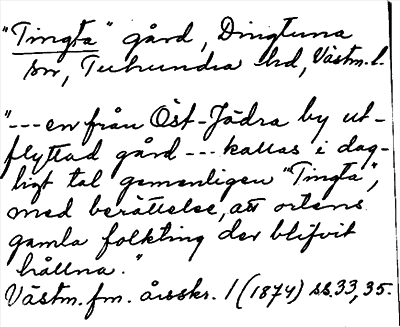 "Tingta" gård, Dingtuna
sn, Tuhundra hd, Västm. l.
"--- en från Öst-Jädra by ut-
flyttad gård --- kallas i dag-
ligt tal gemenligen "Tingta",
med berättelse, att ortens
gamla folkting der blifvit
hållna."
Västm. fm. årsskr. 1 (1874) ss. 33, 35.